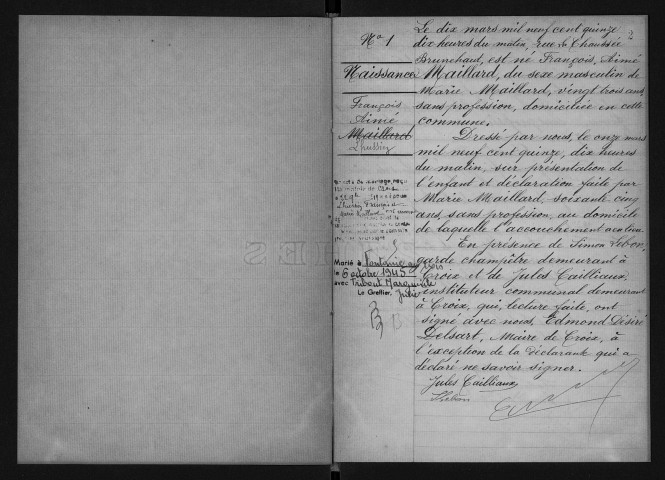 No 1
Naissance
François
Aimé
Maillard
Lhussiez
Marié à Fontaine
le 6 octobre 1945
avec Tribout Marguerite
Le Greffier,
2
Le dix mars mil neuf cent quinze
dix heures du matin, rue la Chaussée
Brunehaut, est né François, Aimé
Maillard, du sexe masculin de
Marie Maillard, vingt trois ans
sans profession, domiciliée en cette
commune.
Dressé par nous, le onze mars
mil neuf cent quinze, dix heures
du matin, sur présentation de
l'enfant et déclaration faite par
Marie Maillard, soixante cinq
ans, sans profession, au domicile
de laquelle l'accouchement a eu lieu
En présence de Simon Lebon,
garde champêtre demeurant à
Croix et de Jules Cailliaux,
instituteur communal demeurant
à Croix, qui, lecture faite, ont
signé avec nous, Edmond Désiré
Delsart, Maire de Croix, à
l'exception de la déclarante qui a
déclaré ne savoir signer.
Jules Cailliaux
SLebon